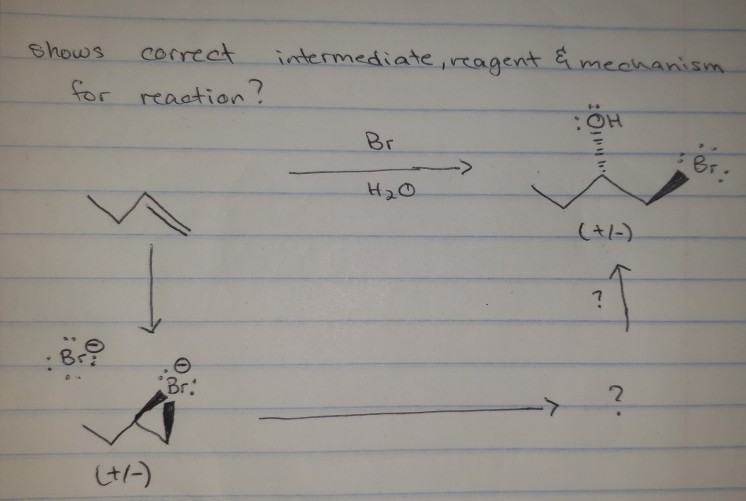 shows correct intermediate, reagent & mechanism
for reaction?
:ÖH
Br
:Br:
H2O
(+/-)
?
:Br: ⊖
⊖
:Br:
?
(+/-)